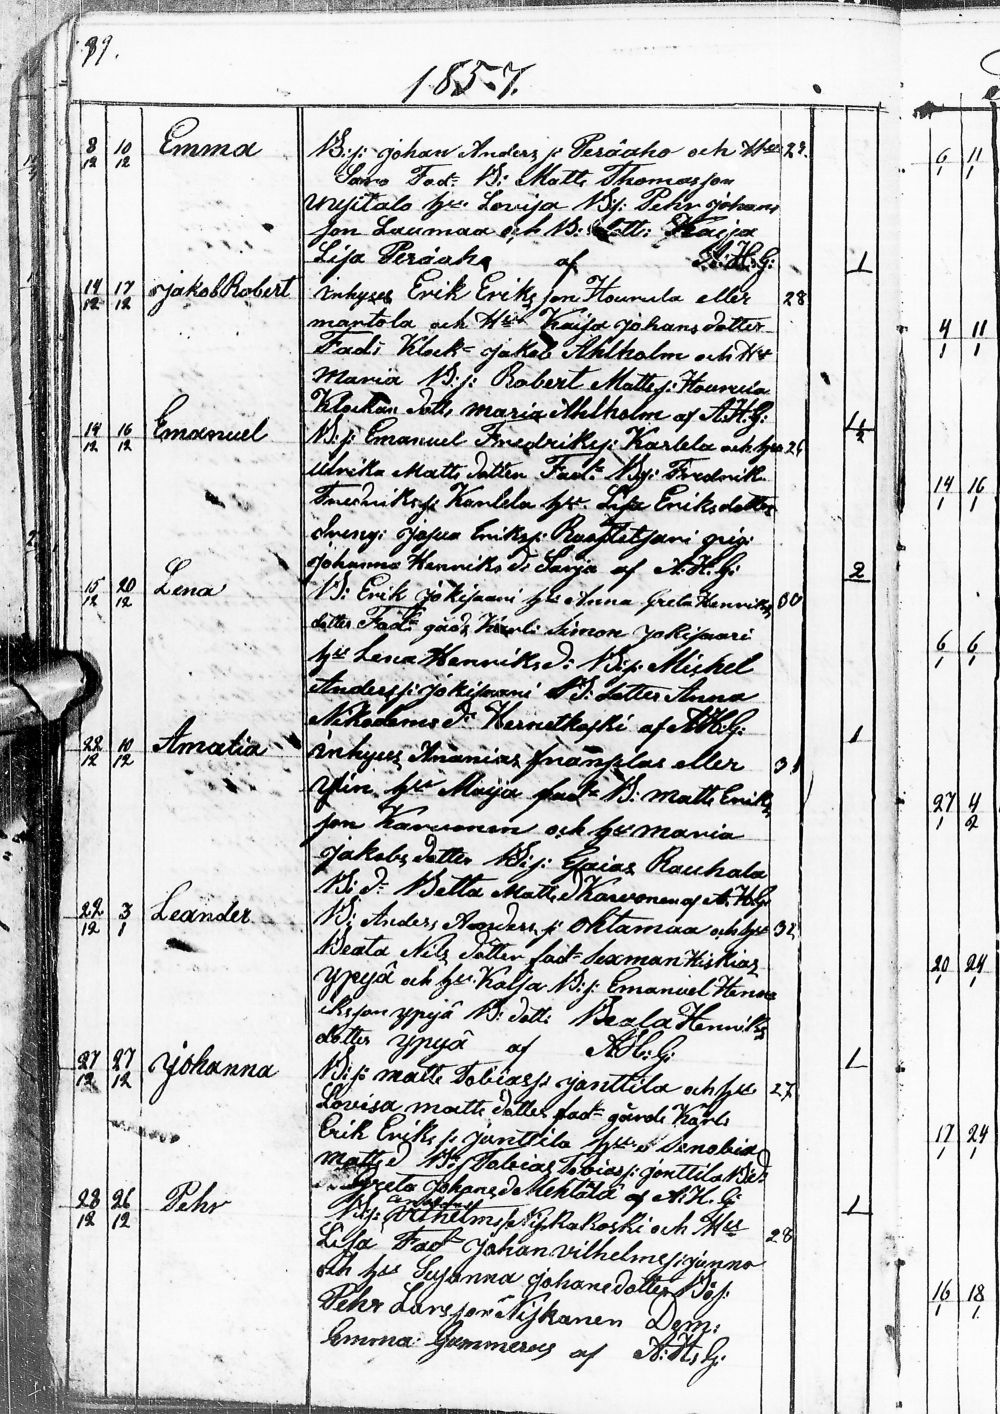 89.
1857.
8/12 10/12 Emma B:s: Johan Anders s: Peräaho och Hu 29.
Sara Fad: B: Matts Thomasson
Uusitalo hu Lovisa B:s: Pehr Johans
son Laumaa och B: dott: Kaisa
Lisa Peräaho af A:H:G: 1
14/12 17/12 Jakob Robert inhyses Erik Eriksson Hourula eller 28
martola och Hu Kaisa Johans dotter
Fad: Klock- Jakob Ahlholm och Hu
Maria B:s: Robert Matts s: Hourula
Klockan dott: maria Ahlholm af A.H.G: 1
14/12 16/12 Emanuel B:s: Emanuel Fredriks s: Karlela och hu 26
Ulrika Matts dotter Fad: B:s: Fredrik
Fredriks s: Karlela hu Lisa Eriksdotter
dreng: Josua Eriks s: pig:
Johanna Henriks d: Sarja af A.H.G: 2
15/12 20/12 Lena B: Erik Jokisaari hu Anna Greta Henriks 30
dotter Fad: gåds Karl: Simon Jokisaari
hu Lena Henriks d: B:s: Mickel
Anders s: Jokisaari B: dotter Anna
Nikodemus d: Hernetkoski af A:H:G: 1
22/12 10/12 Amalia inhyses Ananias eller 31
hu Maija fad: B: Matts Eriks
son Karvonen och hu maria
Jakobs dotter B:s: Esaias Rauhala
B: d: Betta Matts d Karvonen af A.H.G
22/12 3/1 Leander B: Anders Anders s: Oktamaa och hu 32
Beata Nils dotter fad: Sexman Hiskias
Ypyä och hu Kaisa B:s: Emanuel Hen
riksson ypyä B: dott: Beata Henriks
dotter ypyä af A:H:G: 1
27/12 27/12 Johanna B:s: matts Tobias s: Jänttilä och hu 27
Lovisa matts dotter fad: gårds Karl
Erik Eriks s: jänttilä hu Senobia
matts d B:s: Tobias Tobias s: jänttilä B:d:
Greta Johans d Mehtälä af A:H.G: 1
28/12 26/12 Pehr B:s: Vilhelms s: Niskakoski och Hu 28
Lisa Fad: Johan vilhelms s: junno
och hu Susanna Johans dotter B:s:
Pehr Larsson Niskanen Dem:
Emma Gummerus af A:H:G:
6/1 11/1
4/1 11/1
14/1 16/1
6/1 6/1
27/1 4/2
20/1 24/1
17/1 24/1
16/1 18/1